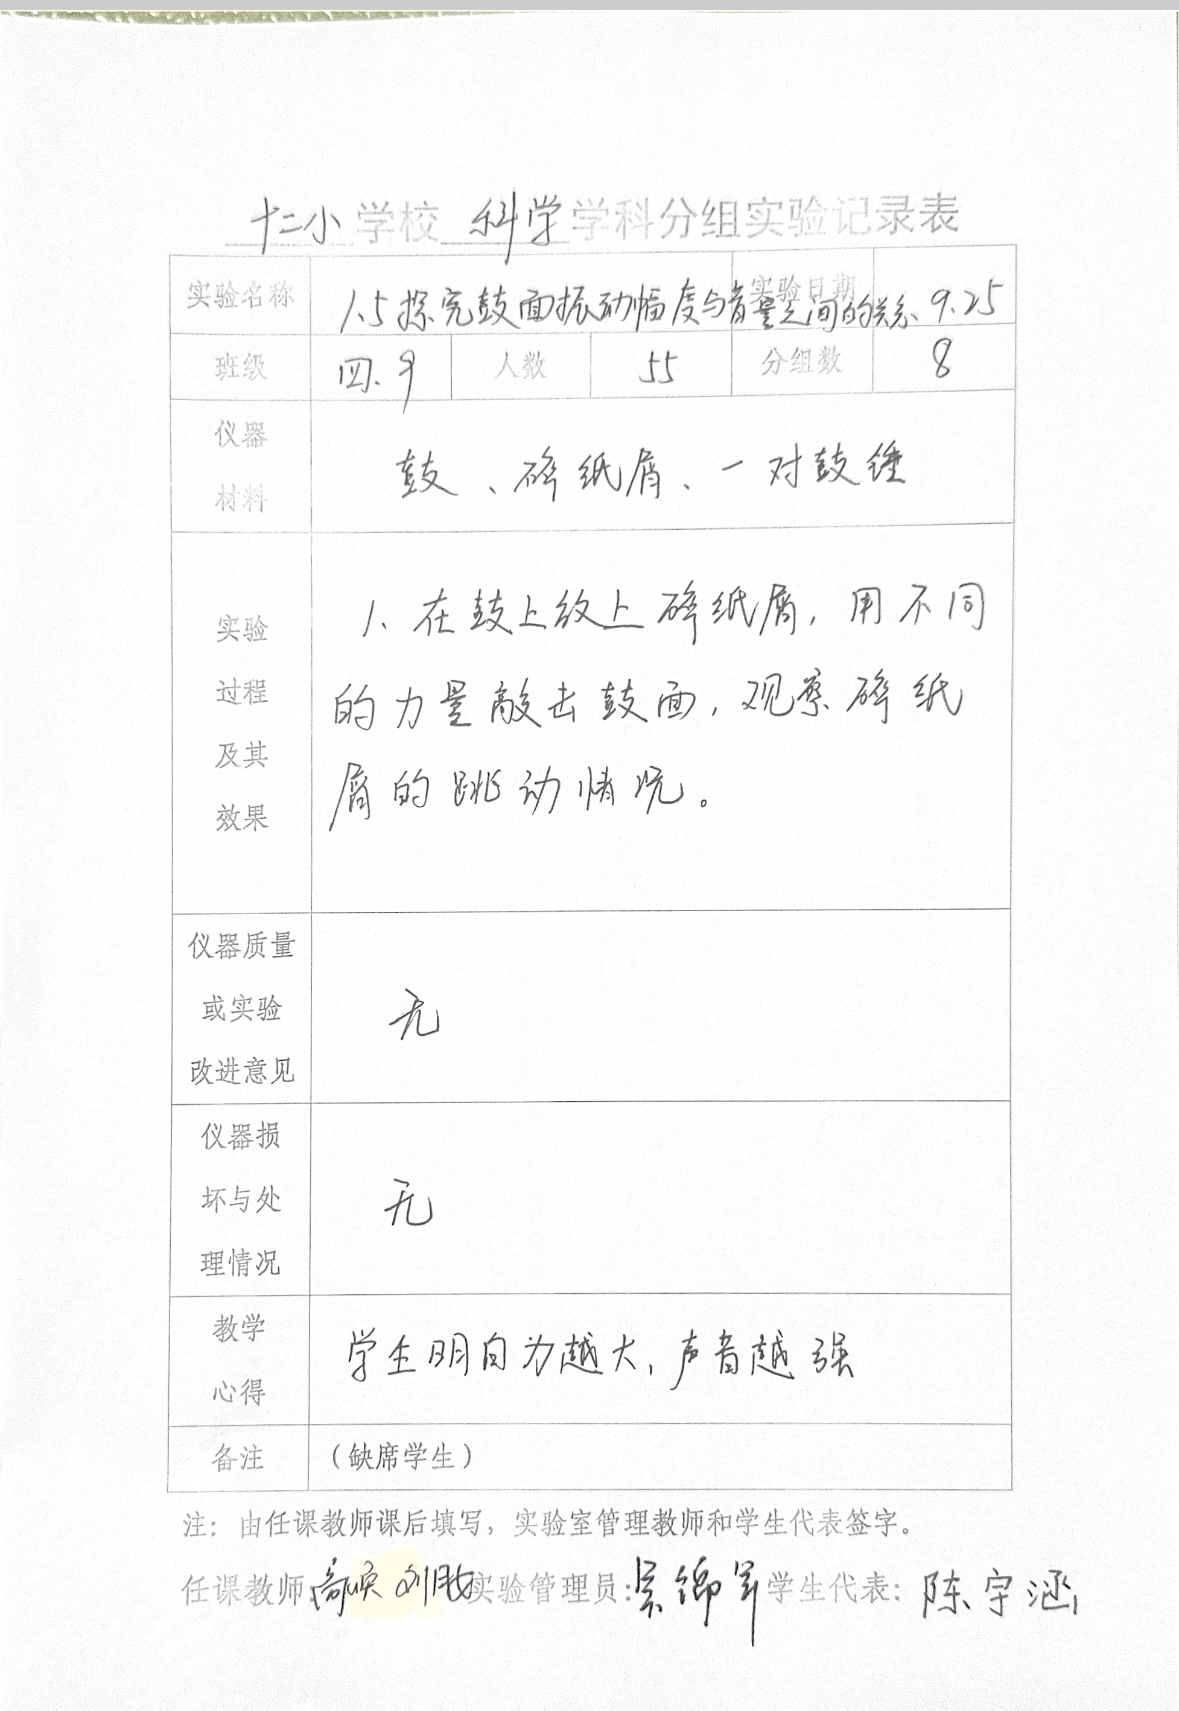 十二小 学校 科学 学科分组实验记录表
实验名称 1.5探究鼓面振动幅度与音量之间的关系 实验日期 9.25
班级 四.9 人数 55 分组数 8
仪器
材料
鼓、碎纸屑、一对鼓锤
实验
过程
及其
效果
1、在鼓上放上碎纸屑,用不同
的力量敲击鼓面,观察碎纸
屑的跳动情况。
仪器质量
或实验
改进意见
无
仪器损
坏与处
理情况
无
教学
心得
学生明白力越大,声音越强
备注 (缺席学生)
注:由任课教师课后填写,实验室管理教师和学生代表签字。
任课教师: 实验管理员: 学生代表: 陈宇涵